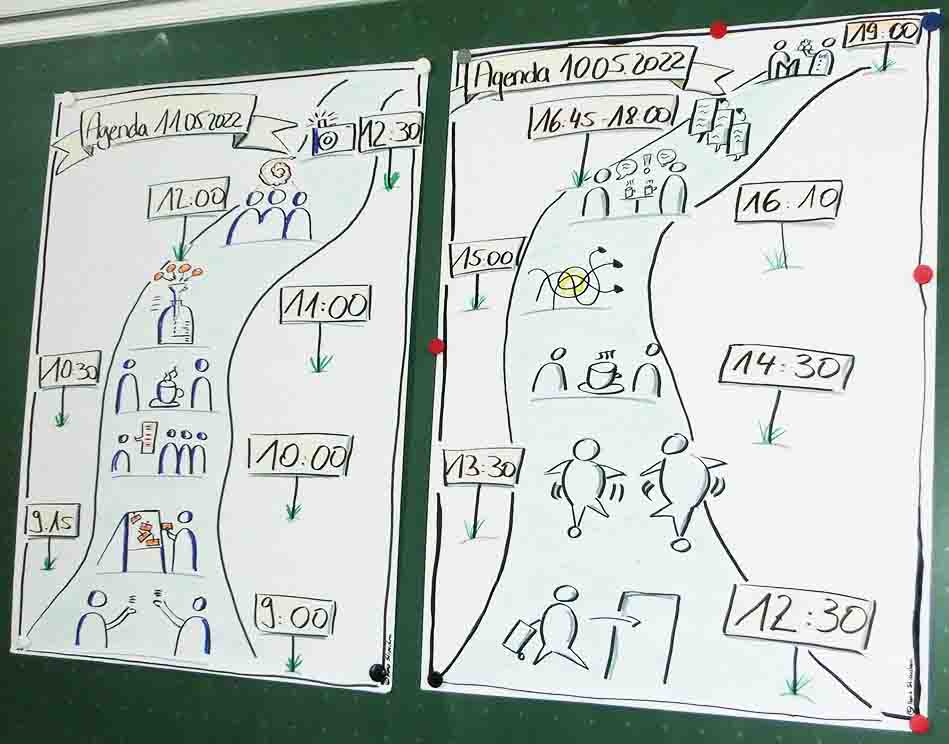 Agenda 11.05.2022
12:30
12:00
11:00
10:30
10:00
9.15
9:00
Agenda 10.05.2022
19:00
16:45-18:00
16:10
15:00
14:30
13:30
12:30